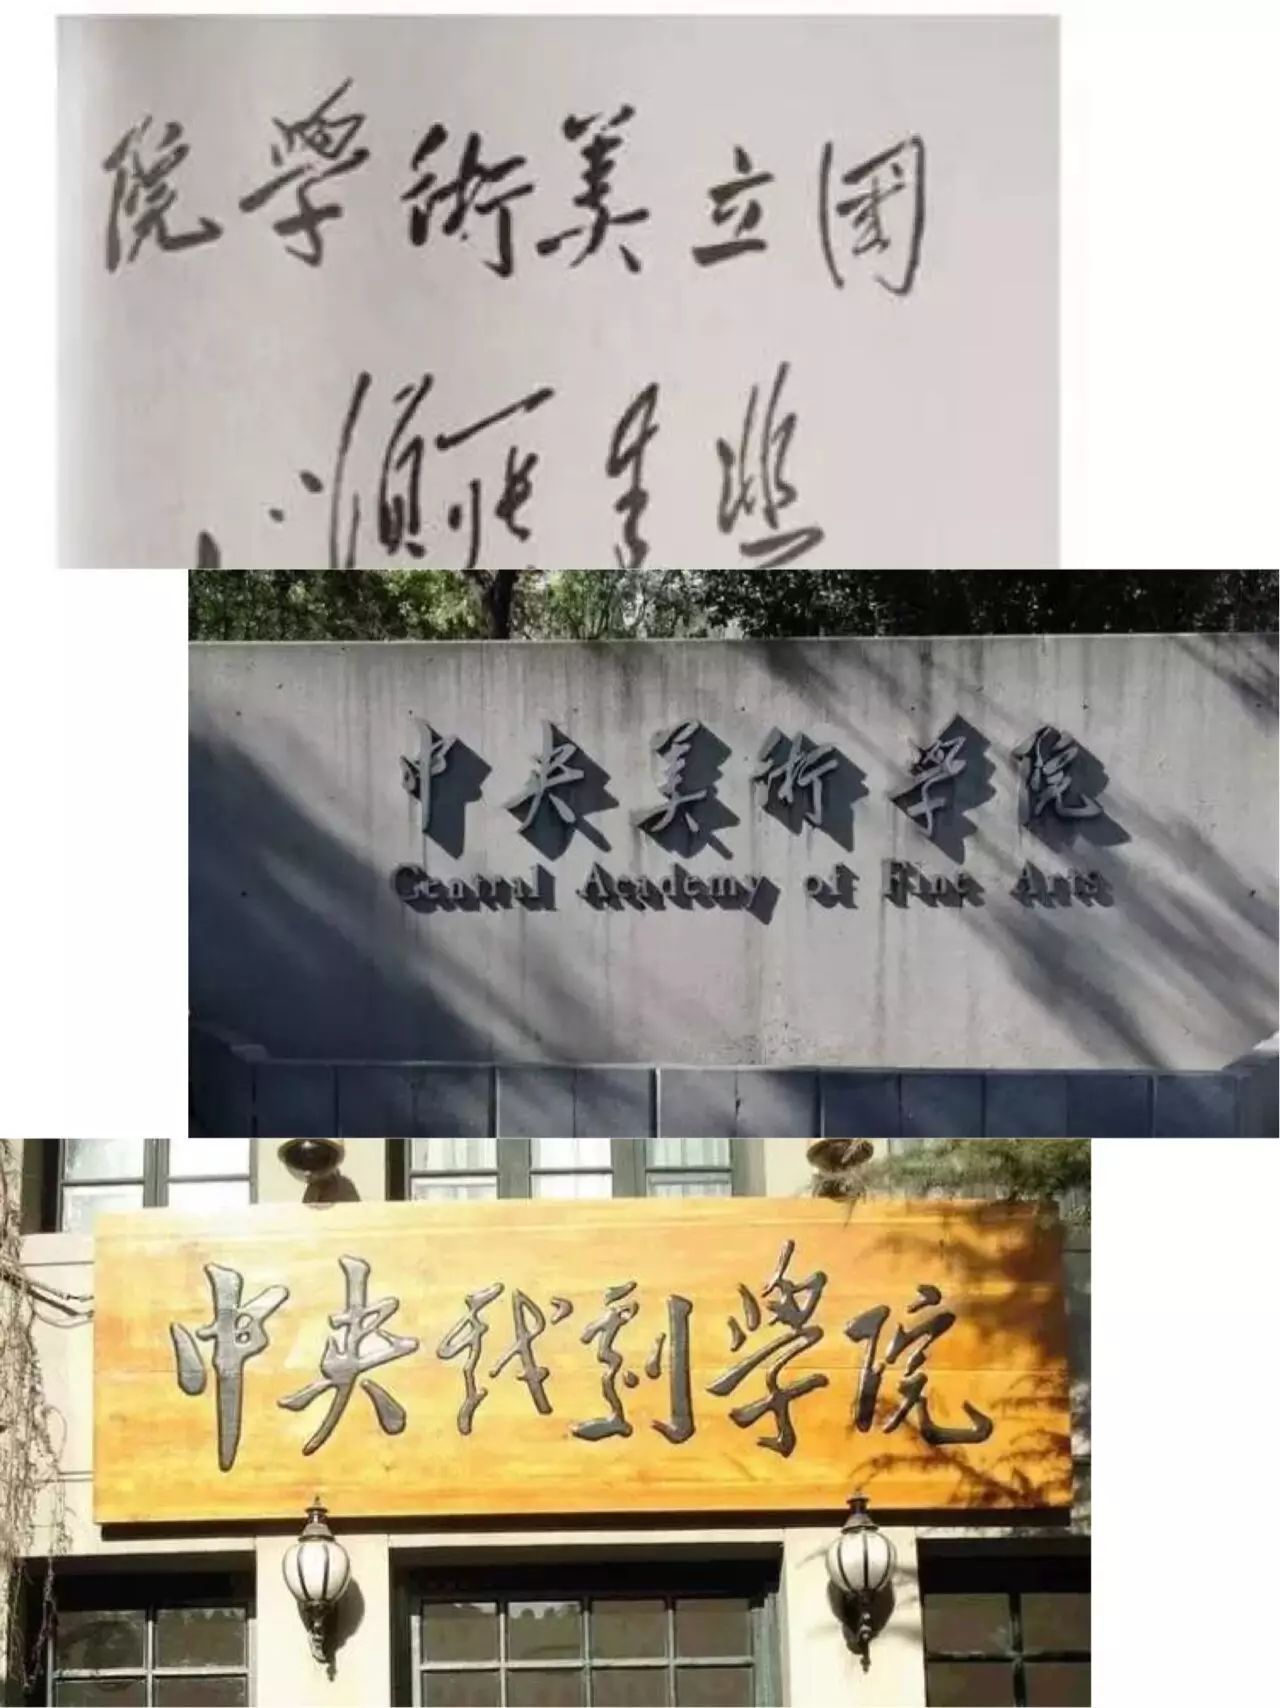 國立美術學院
中央美術學院
Central Academy of Fine Arts
中央戲劇學院